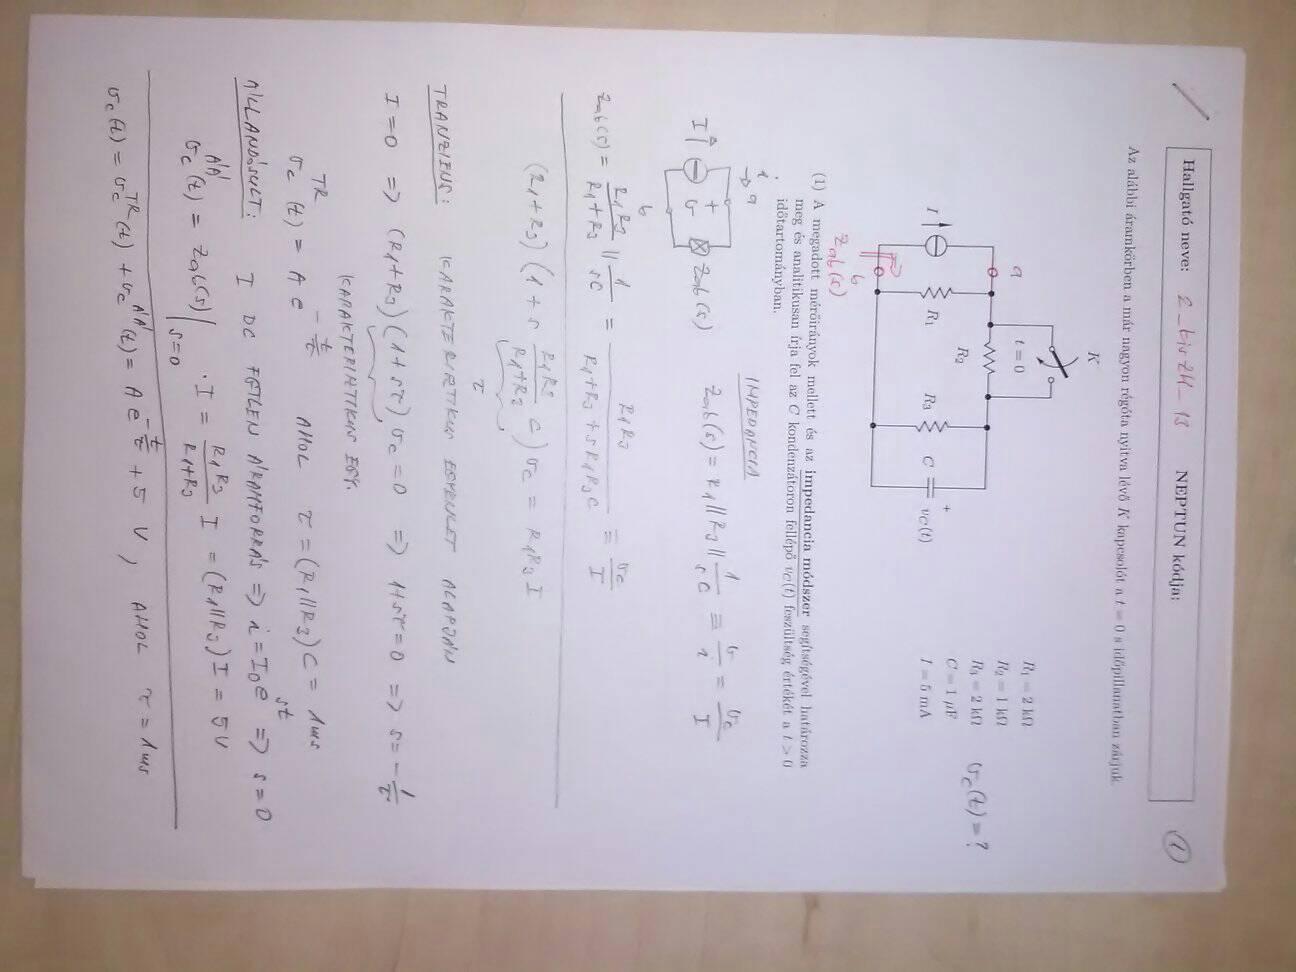 Hallgató neve: 2_kiszH_13 NEPTUN kódja:
①
Az alábbi áramkörben a már nagyon régóta nyitva lévő K kapcsolót a t = 0 s időpillanatban zárjuk.
K
t = 0
a
R₂
I
R₁
R₃
C
+
v_C(t)
b
Z_ab(s)
R₁ = 2 kΩ
R₂ = 1 kΩ
R₃ = 2 kΩ
C = 1 μF
I = 5 mA
v_c(t) = ?
(1) A megadott mérőirányok mellett és az impedancia módszer segítségével határozza
meg és analitikusan írja fel az C kondenzátoron fellépő v_C(t) feszültség értékét a t > 0
időtartományban.
IMPEDANCIA
i
a
I
+
v
-
Z_ab(s)
b
Z_ab(s) = R₁ || R₃ || 1/sC ≡ v/i = v_c/I
Z_ab(s) = R₁R₃/(R₁+R₃) || 1/sC = R₁R₃/(R₁+R₃+sR₁R₃C) ≡ v_c/I
(R₁+R₃)(1 + s R₁R₃/(R₁+R₃) C) v_c = R₁R₃ I
τ
TRANZIENS: KARAKTERISZTIKUS EGYENLET ALAPJÁN
I = 0 => (R₁+R₃)(1+sτ) v_c = 0 => 1+sτ = 0 => s = -1/τ
KARAKTERISZTIKUS EGY.
v_c^TR(t) = A e^(-t/τ) AHOL τ = (R₁||R₃)C = 1ms
ÁLLANDÓSULT: I DC FGTLEN ÁRAMFORRÁS => i = I₀e^(st) => s = 0
v_c^ÁÁ(t) = Z_ab(s)|_(s=0) · I = R₁R₃/(R₁+R₃) I = (R₁||R₃) I = 5V
v_c(t) = v_c^TR(t) + v_c^ÁÁ(t) = A e^(-t/τ) + 5 V, AHOL τ = 1ms